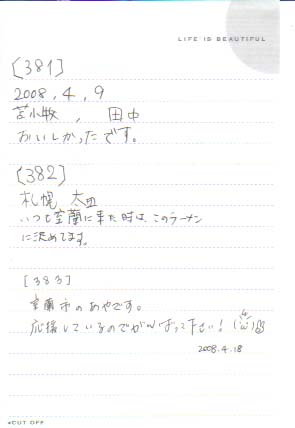 LIFE IS BEAUTIFUL
[381]
2008.4.9
苫小牧、田中
おいしかったです。
[382]
札幌 太田
いつも室蘭に来た時は、このラーメン
に決めてます。
[383]
室蘭市のあやです。
応援しているのでがんばって下さい!
2008.4.18
CUT OFF